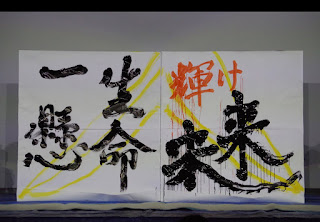 一生
懸命
輝け
未来